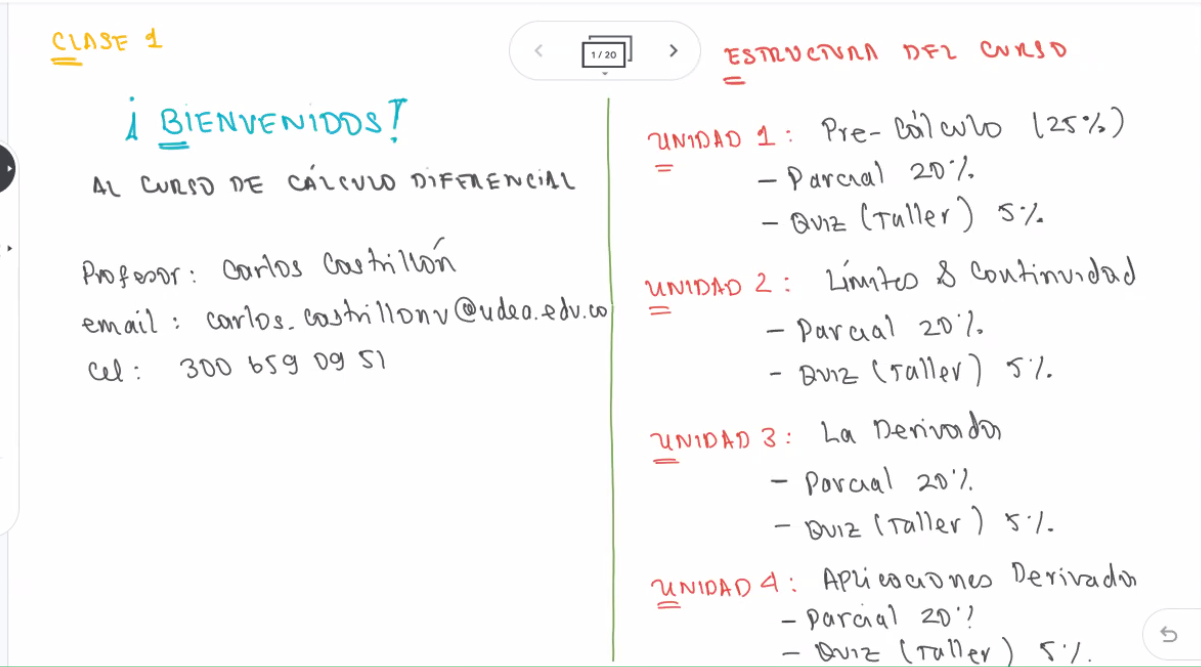 CLASE 1
¡BIENVENIDOS!
AL CURSO DE CÁLCULO DIFERENCIAL
Profesor: Carlos Castrillón
email: carlos.castrillonv@udea.edu.co
Cel: 300 659 09 51
1 / 20
ESTRUCTURA DEL CURSO
UNIDAD 1: Pre-Cálculo (25%)
- Parcial 20%
- Quiz (Taller) 5%
UNIDAD 2: Límites & Continuidad
- Parcial 20%
- Quiz (Taller) 5%
UNIDAD 3: La Derivada
- Parcial 20%
- Quiz (Taller) 5%
UNIDAD 4: Aplicaciones Derivada
- Parcial 20%
- Quiz (Taller) 5%